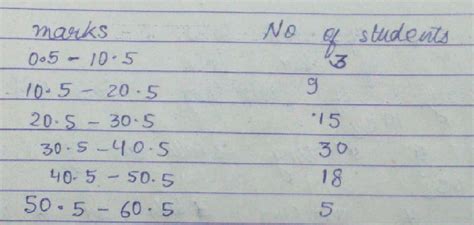 marks No of students
0.5 - 10.5 3
10.5 - 20.5 9
20.5 - 30.5 15
30.5 - 40.5 30
40.5 - 50.5 18
50.5 - 60.5 5